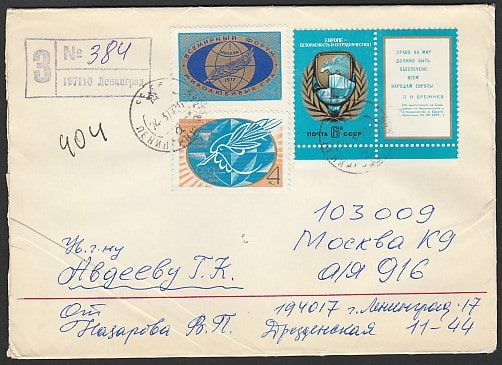 З № 384
197110 Ленинград
904
ВСЕМИРНЫЙ ФОРУМ
МИРОЛЮБИВЫХ СИЛ
1977
ЕВРОПЕ-
БЕЗОПАСНОСТЬ И СОТРУДНИЧЕСТВО!
ПОЧТА 6К СССР
ПРАВО НА МИР
ДОЛЖНО БЫТЬ
ОБЕСПЕЧЕНО
ВСЕМ
НАРОДАМ ЕВРОПЫ
Л.И. БРЕЖНЕВ
4
ЛЕНИНГРАД
103009
Москва К9
а/я 916
Ув. г-ну
Авдееву Г.К.
От
Назарова В.П.
194017 г. Ленинград-17
Дрезденская 11-44